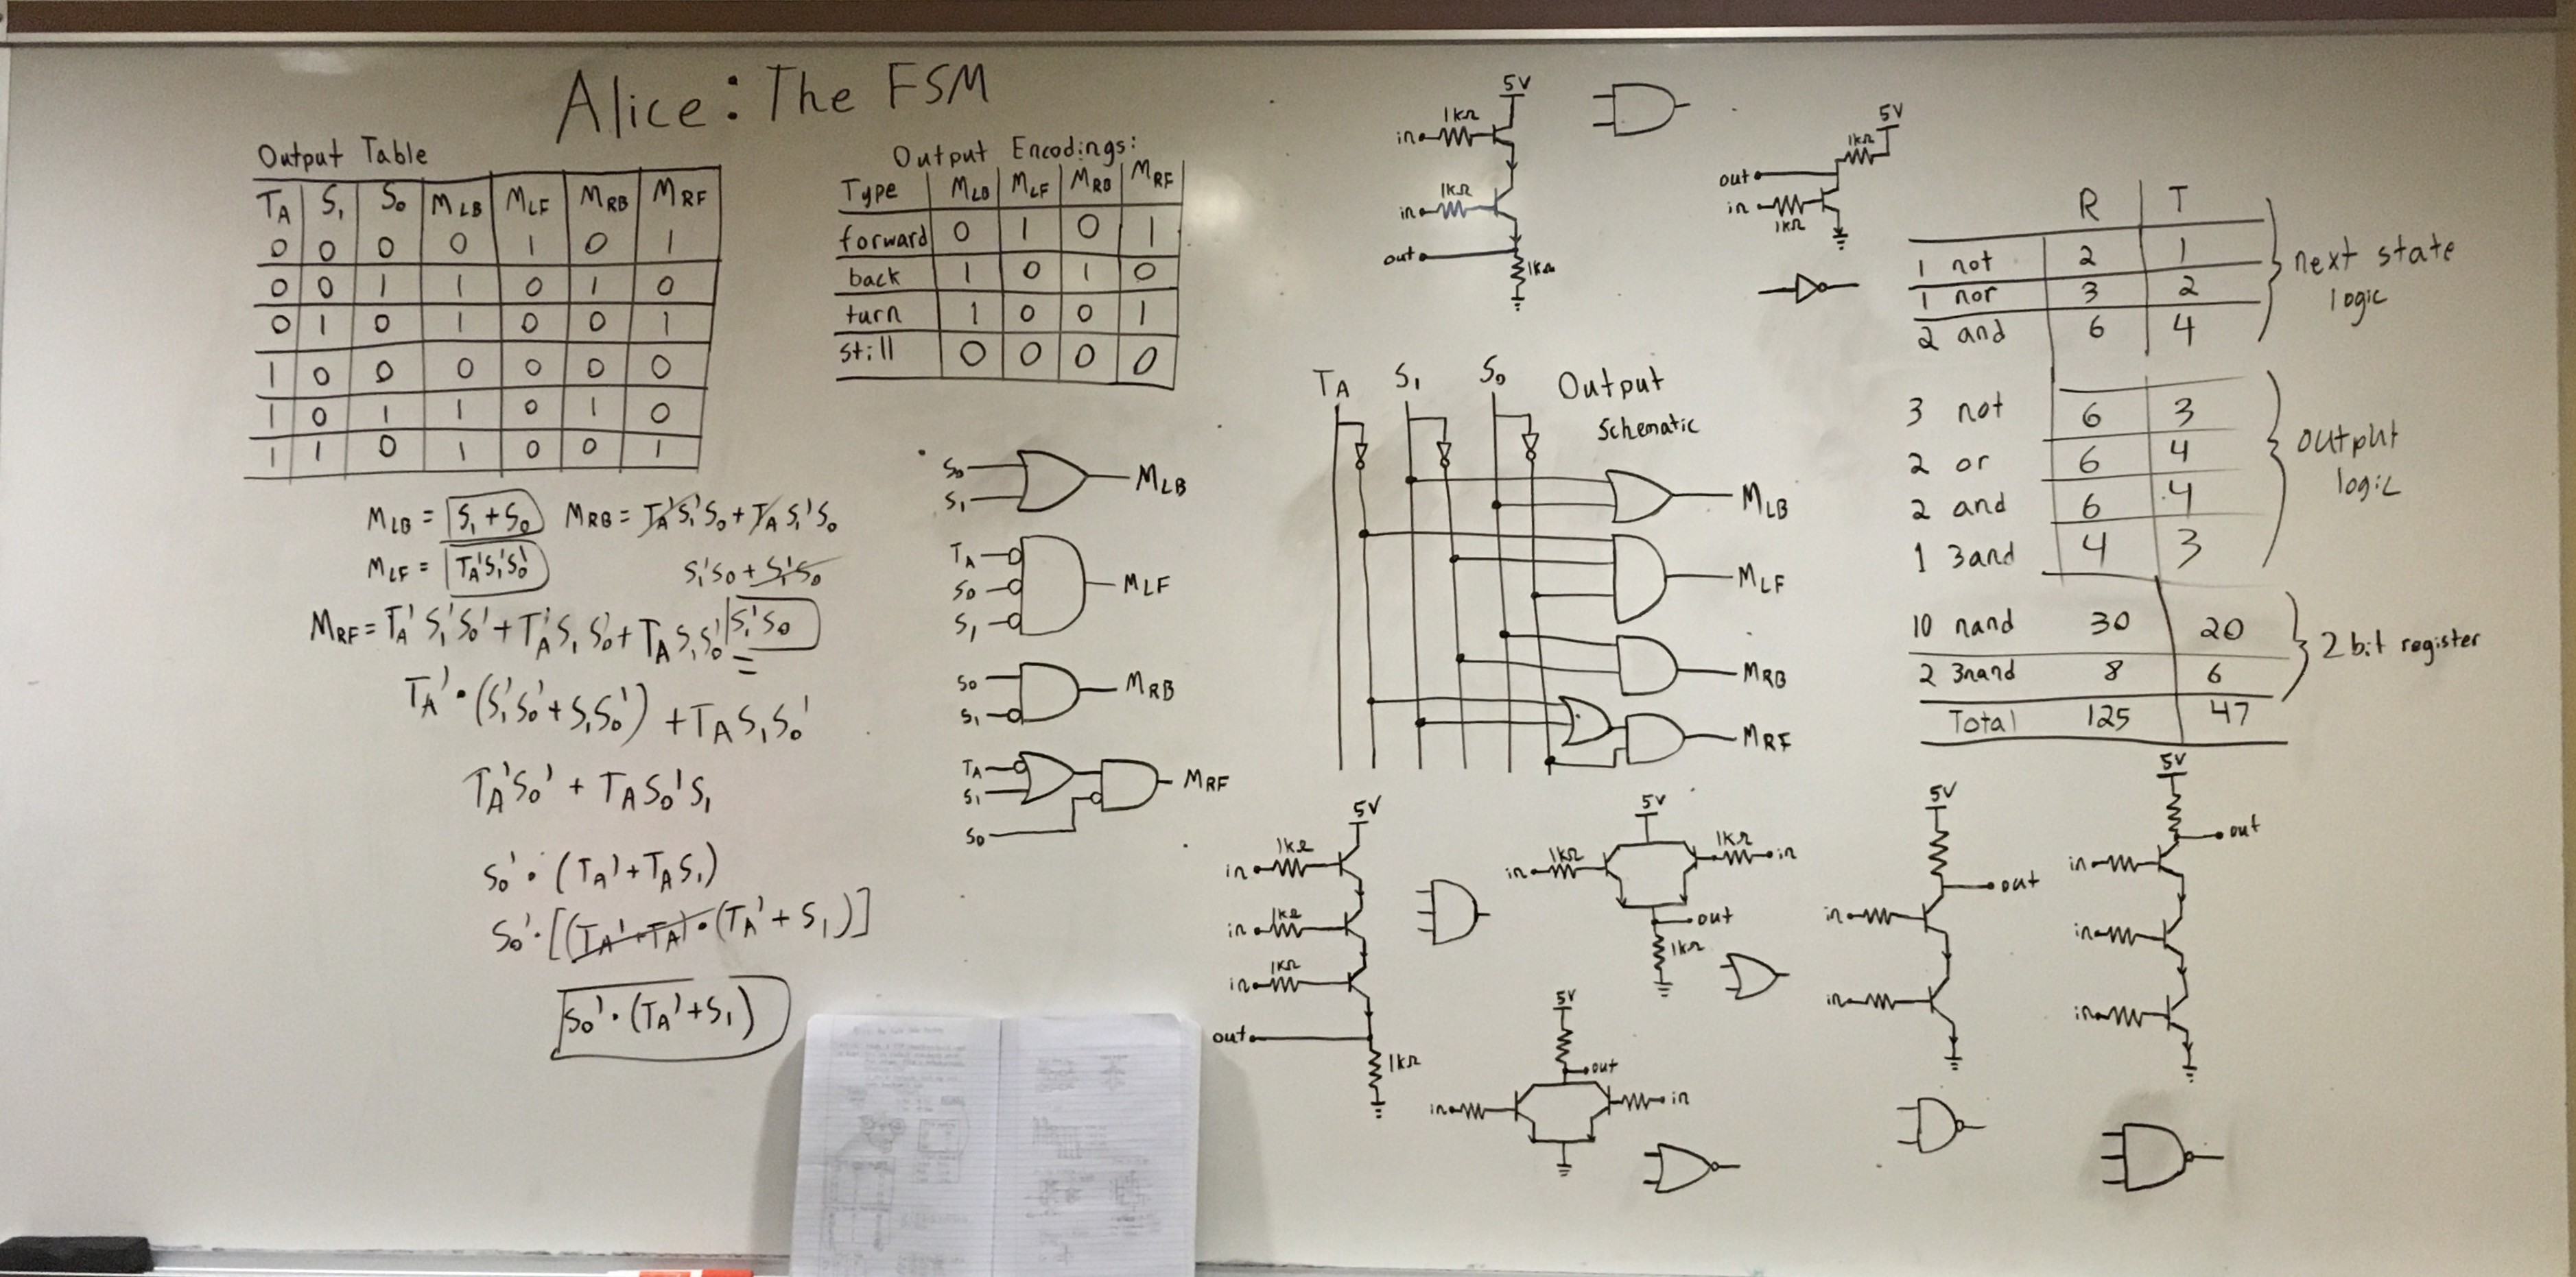 Alice: The FSM
Output Table
T_A S_1 S_0 M_LB M_LF M_RB M_RF
0 0 0 0 1 0 1
0 0 1 1 0 1 0
0 1 0 1 0 0 1
1 0 0 0 0 0 0
1 0 1 1 0 1 0
1 1 0 1 0 0 1
M_LB = S_1 + S_0
M_RB = T_A'S_1'S_0 + T_A S_1'S_0
M_LF = T_A'S_1'S_0'
S_1'S_0 + S_1'S_0
S_1'S_0
M_RF = T_A' S_1'S_0' + T_A'S_1 S_0' + T_A S_1 S_0'
=
T_A' • (S_1'S_0' + S_1S_0') + T_A S_1S_0'
T_A'S_0' + T_A S_0'S_1
S_0' • (T_A' + T_A S_1)
S_0' • [(T_A' + T_A) • (T_A' + S_1)]
S_0' • (T_A' + S_1)
Output Encodings:
Type M_LB M_LF M_RB M_RF
forward 0 1 0 1
back 1 0 1 0
turn 1 0 0 1
still 0 0 0 0
S_0 M_LB
S_1
T_A
S_0 M_LF
S_1
S_0 M_RB
S_1
T_A M_RF
S_1
S_0
5V
in 1kΩ
in 1kΩ
out
1kΩ
5V
1kΩ
out
in
1kΩ
T_A S_1 S_0 Output
Schematic
M_LB
M_LF
M_RB
M_RF
R T
1 not 2 1
1 nor 3 2
2 and 6 4
next state
logic
3 not 6 3
2 or 6 4
2 and 6 4
1 3and 4 3
output
logic
10 nand 30 20
2 3nand 8 6
2 bit register
Total 125 47
5V
in 1kΩ
in 1kΩ
in 1kΩ
out
1kΩ
5V
in 1kΩ 1kΩ in
out
1kΩ
5V
out
in in
5V
out
in
in
5V
out
in
in
in